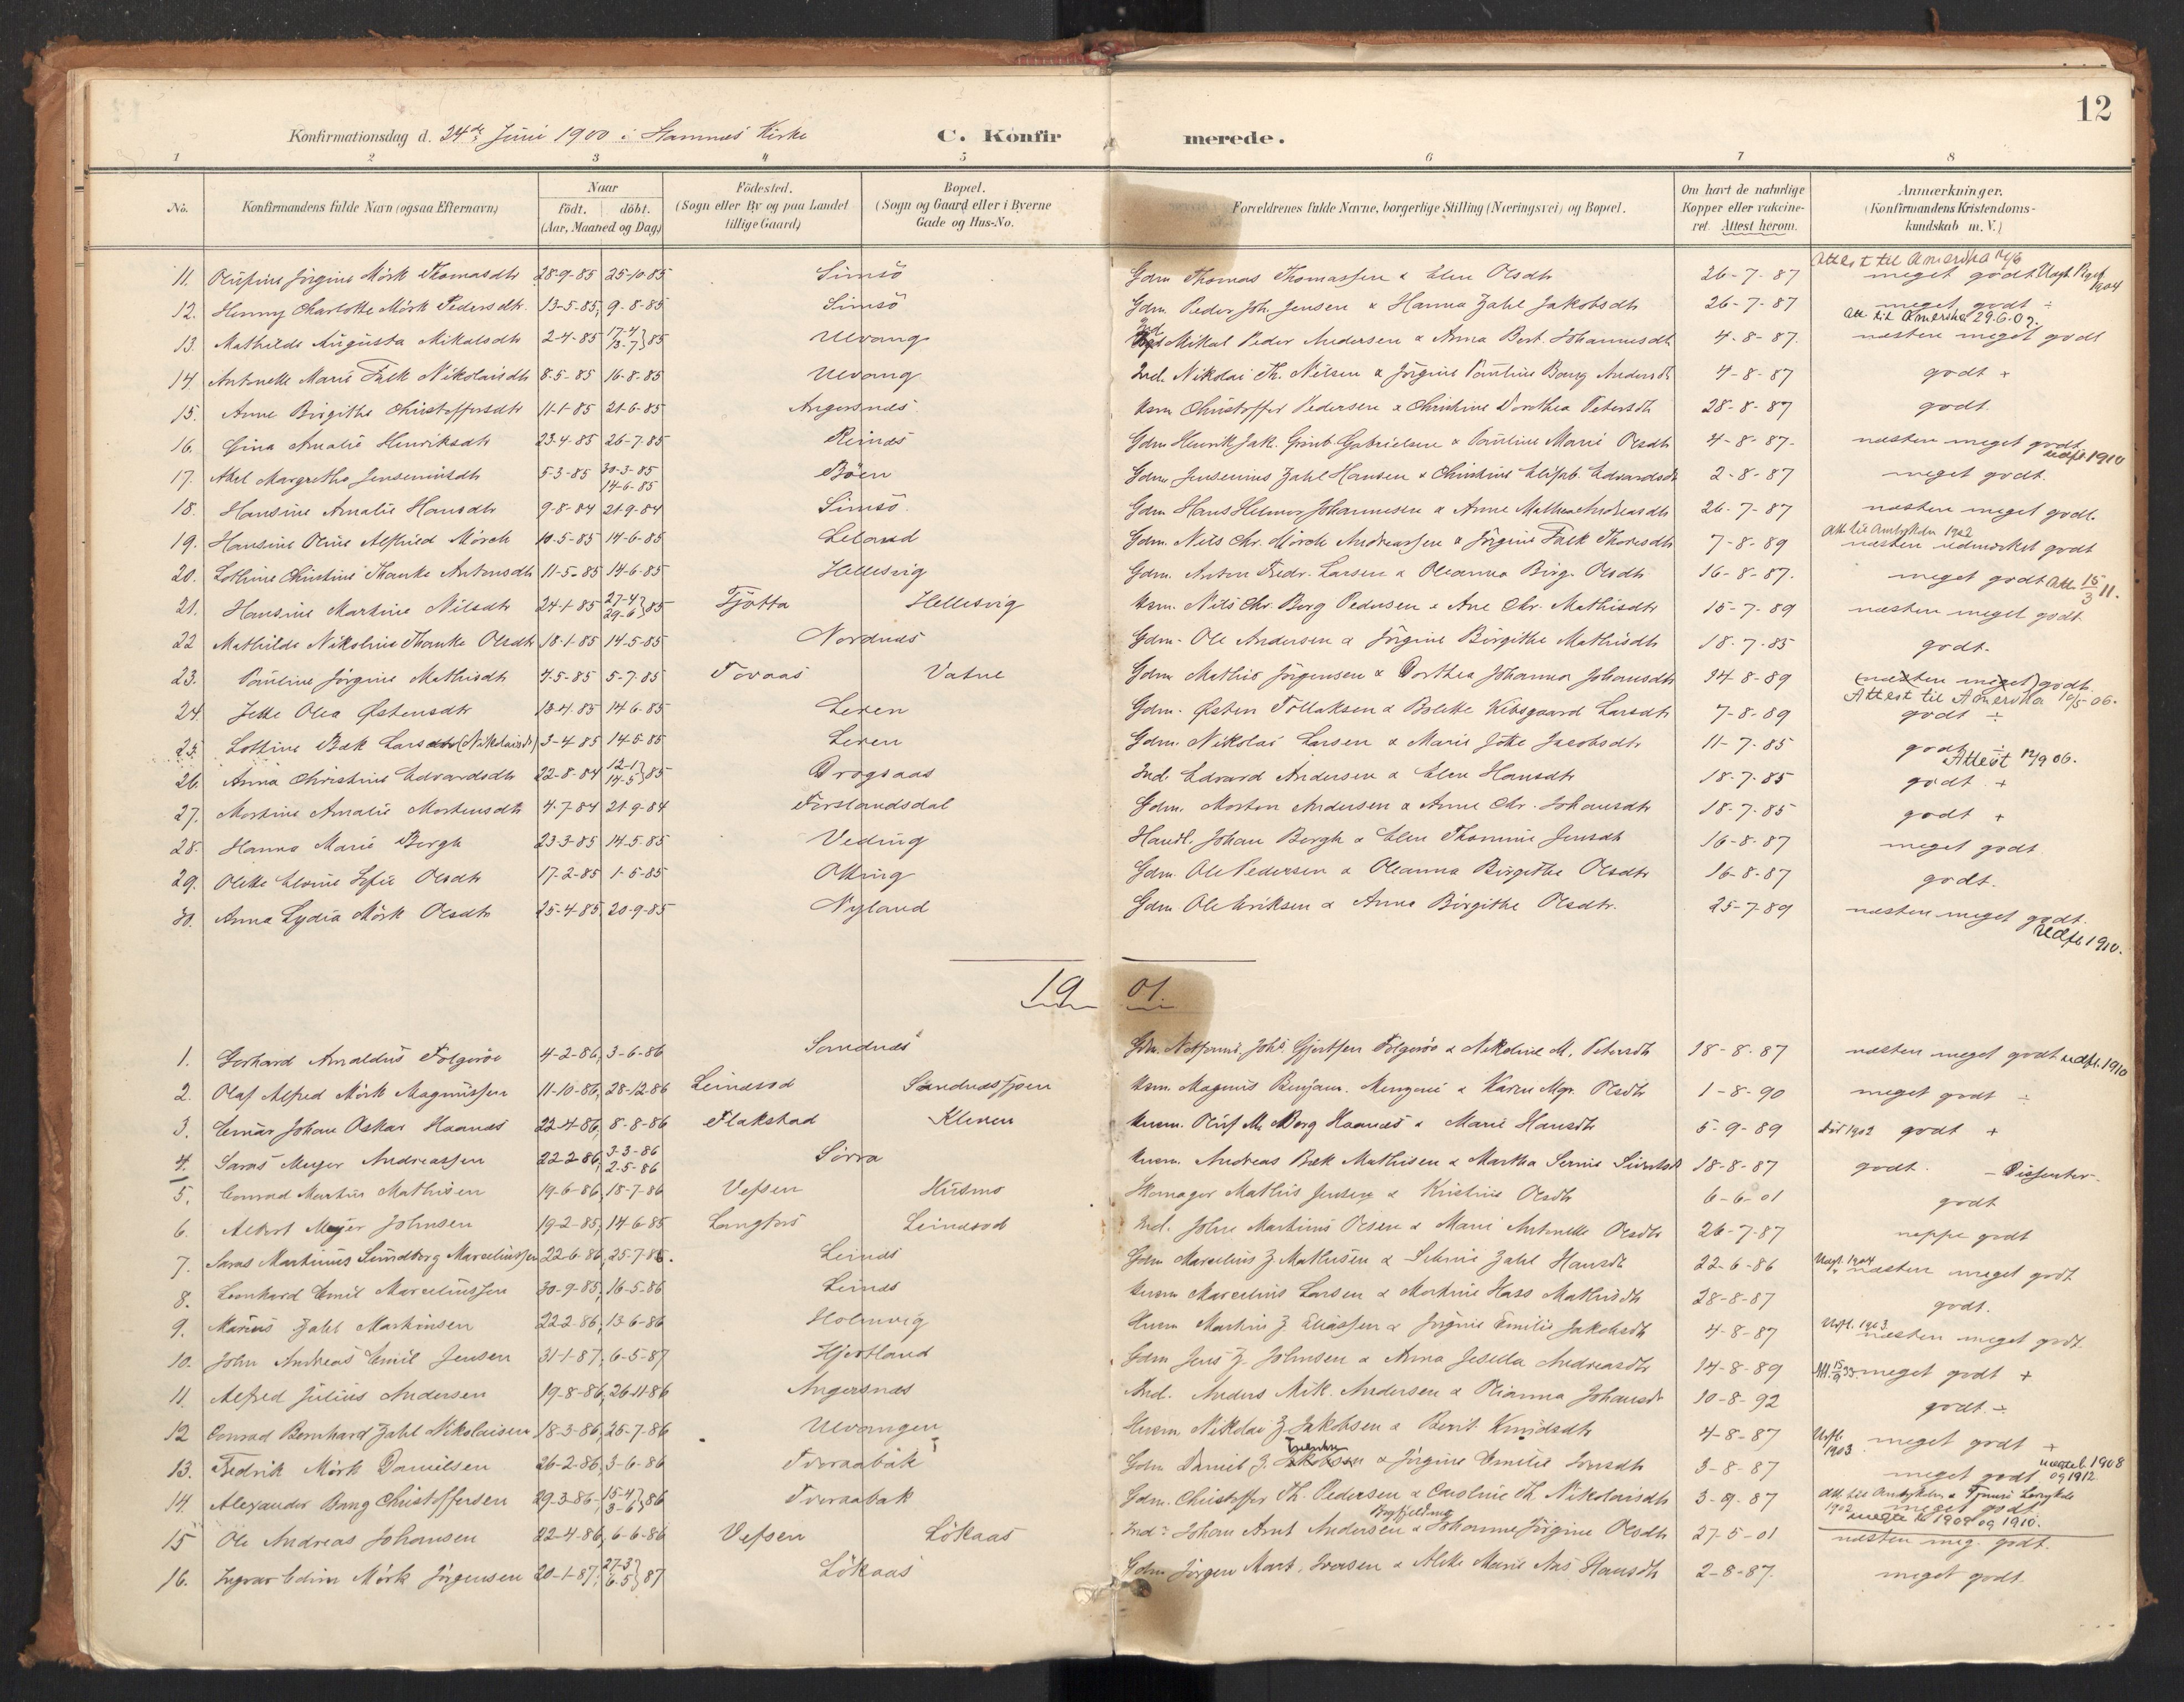 12
Konfirmationsdag d. 24de Juni 1900 i Stamnes Kirke C. Konfirmerede.
1 2 3 4 5 6 7 8
No. Konfirmandens fulde Navn (ogsaa Efternavn) Naar födt. döbt. (Aar, Maaned og Dag) Födested. (Sogn eller By og paa Landet tillige Gaard) Bopæl. (Sogn og Gaard eller i Byerne Gade og Hus-No. Forældrenes fulde Navne, borgerlige Stilling (Næringsvei) og Bopæl. Om havt de naturlige Kopper eller vakcineret. Attest herom. Anmærkninger. (Konfirmandens Kristendomskundskab m.V.)
Attest til Amerika
11. Jörgine Mörk Thomasdtr 28-9-85 25-10-85 Simsö Gdm Thomas Thomassen & Elen Olsdtr 26-7-87 meget godt 1904
12. Henny Charlotte Mörk Pedersdtr. 13-5-85 9-8-85 Simsö Gdm. Peder Joh. Jensen & Hanna Zahl Jakobsdtr 26-7-87 meget godt ÷
Att til Amerika 29.6.02
13. Mathilde Augusta Mikalsdtr 2-4-85 17-4 13-7 } 85 Ulvang Mikal Peder Andersen & Anna Berit Johannesdtr 4-8-87. næsten meget godt
14 Antonette Marie Falk Nikolaisdtr 8-5-85 16-8-85 Ulvang Ind. Nikolai Th. Nilsen & Jörgine Pauline Bang Andersdtr 4-8-87 godt +
15. Anne Birgithe Christoffersdtr 11-1-85 21-6-85 Angersnæs Christoffer Pedersen & Christine Dorthea Petersdtr 28-8-87 godt.
16. Gina Amalie Henriksdtr 23-4-85 26-7-85 Reinæs Gdm Henrik Jak. Gabrielsen & Pauline Marie Olsdtr 4-8-87. næsten meget godt udfl 1910
17. Margrethe Jenseniusdtr 5-3-85 30-3-85 14-6-85 Böen Gdm Jensenius Zahl Hansen & Christine Elisab. Edvardsdtr 2-8-87 meget godt.
18. Hansine Amalie Hansdtr 9-8-84 21-9-84 Simsö. Gdm Hans Helmer Johannesen & Anne Mathea Andreasdtr 26-7-87 næsten meget godt.
19. Hansine Oline Alfhild Mörch 10-5-85 14-6-85 Leland Gdm. Nils Chr. Mörch Andreassen & Jörgine Falk Thoresdtr 7-8-89 næsten udmærket godt
20. Lothine Christine Hanke Antonsdtr 11-5-85 14-6-85 Hellesvig Gdm. Anton Fredr. Larsen & Oleanna Birg. Olsdtr 16-8-87. meget godt Att. 15/3 11.
21. Hansine Martine Nilsdtr 24-1-85 27-4 29-6 } 85 Tjötta Hellesvig Nils Chr. Borg Pedersen & Ane Chr. Mathisdtr 15-7-89 næsten meget godt
22 Mathilde Nikoline Hanke Olsdtr 18-1-85 14-5-85 Nordnæs Gdm. Ole Andersen & Jörgine Birgithe Mathisdtr 18-7-85 godt.
23. Pauline Jörgine Mathisdtr 7-5-85 5-7-85 Tovaas Vatne Gdm Mathis Jörgensen & Dorthea Johanna Johansdtr 14-8-89 (næsten meget) godt.
Attest til Amerika 10/5-06.
24 Jette Olea Østensdtr 13-4-85 14-6-85 Leren Gdm. Østen Tollaksen & Bolette Kibsgaard Larsdtr 7-8-89 godt ÷
25. Lothine Bæk Larsdtr (Nikolaisdtr) 3-4-85 14-5-85 Leren Gdm. Nikolai Larsen & Marie Jette Jacobsdtr 11-7-85 godt ÷ Attest 12/9 06.
26. Anna Christine Edvardsdtr 22-8-84 12-1 14-5 } 85 Drogsaas Ind. Edvard Andersen & Elen Hansdtr 18-7-85 godt +
27. Martine Amalie Mortensdtr 4-7-84 21-9-84 Forslandsdal Gdm. Morten Andersen & Anne Chr. Johansdtr 18-7-85 godt +
28. Hanna Marie Bergh 23-3-85 14-5-85 Veding Handl. Johan Bergh & Elen Thomine Jensdtr 16-8-87 meget godt
29. Olette Elvine Sofie Olsdtr 17-2-85 1-5-85 Olting Gdm. Ole Pedersen & Oleanna Birgithe Olsdtr 16-8-87 godt.
30. Anna Lydia Mörk Olsdtr 25-4-85 20-9-85 Nyland Gdm Ole Eriksen & Anna Birgithe Olsdtr. 25-7-89 næsten meget godt. Udfl 1910.
1901.
1. Gerhard Arnoldus Folgeröe 4-2-86, 3-6-86 Sandnæs Gjertsen Folgeröe & Nikoline M. Petersdtr 18-8-87 næsten meget godt udfl. 1910
2. Olaf Alfred Mörk Magnussen 11-10-86, 28-12-86 Leindsod Sandnæssjöen Magnus Benjam. & Karen Mgr. Olsdtr 1-8-90 meget godt ÷
3. Einar Johan Oskar Haanæs 22-4-86, 8-8-86 Flakstad Kleven M. Borg Haanæs & Marie Hansdtr 5-9-89 död 1902 godt +
4. Saras Meyer Andreassen 22-2-86, 3-3-86 2-5-86 Sörra Andreas Bæk Mathisen & Martha 18-8-87 godt. – Dissenter.
5. Conrad Martin Mathisen 19-6-86, 18-7-86 Vefsen Husmo Skomager Mathis Jensen & Kristine Olsdtr 6-6-01 godt
6. Albert Meyer Johnsen 19-2-85, 14-6-85 Langfors Leindsod Ind. John Martinus Olsen & Marie Antonette Olsdtr 26-7-87 neppe godt
7. Saras Martinus Sundborg Marceliussen 22-6-86, 25-7-86. Leines Gdm Marcelius Z. Mathisen & Zahl Hansdtr 22-6-86 Udfl. 1904 næsten meget godt
8. Leonhard Emil Marceliussen 30-9-85, 16-5-86 Leines Marcelius Larsen & Martine Hass Mathisdtr 28-8-87 godt.
9. Marius Zahl Martinsen 22-2-86, 13-6-86 Holmvig Martin Z. Eliassen & Jörgine Emilie Jakobsdtr 4-8-87 Udfl. 1903 næsten meget godt.
10. John Andreas Emil Jensen 31-1-87, 6-5-87 Hjertland Gdm Jens Z. Johnsen & Anna Andreasdtr 14-8-89 meget godt +
11. Alfred Julius Andersen 19-8-86, 26-11-86 Angersnæs Ind. Anders Mik. Andersen & Olianna Johansdtr 10-8-92 godt. ÷
12 Conrad Bernhard Zahl Nikolaisen 18-3-86, 25-7-86 Ulvangen Nikolai Z. Jakobsen & Berit Knudsdtr 4-8-87 Udfl. 1903 meget godt +
13. Fredrik Mörk Danielsen 26-2-86, 3-6-86 Tveraabæk Gdm Daniel Z. & Jörgine Emilie 3-8-87 meget godt 1908 og 1912
14 Alexander Bang Christoffersen 29-3-86, 15-4 3-6 } 86 Tveraabæk Gdm. Christoffer Th. Pedersen & Caroline Th. Nikolaisdtr 3-9-87 1902 meget godt
15 Ole Andreas Johansen 22-4-86, 6-6-86 Vefsen Lökaas Ind. Johan Arnt Andersen & Johanne Jörgine Olsdtr 27-5-01 næsten meg. godt.
16. Ingvar Edvin Mörk Jörgensen 20-1-87, 27-3 6-5 } 87 Lökaas Gdm Jörgen Mart. Iversen & Aleke Marie Aas Hansdtr 2-8-87. meget godt.